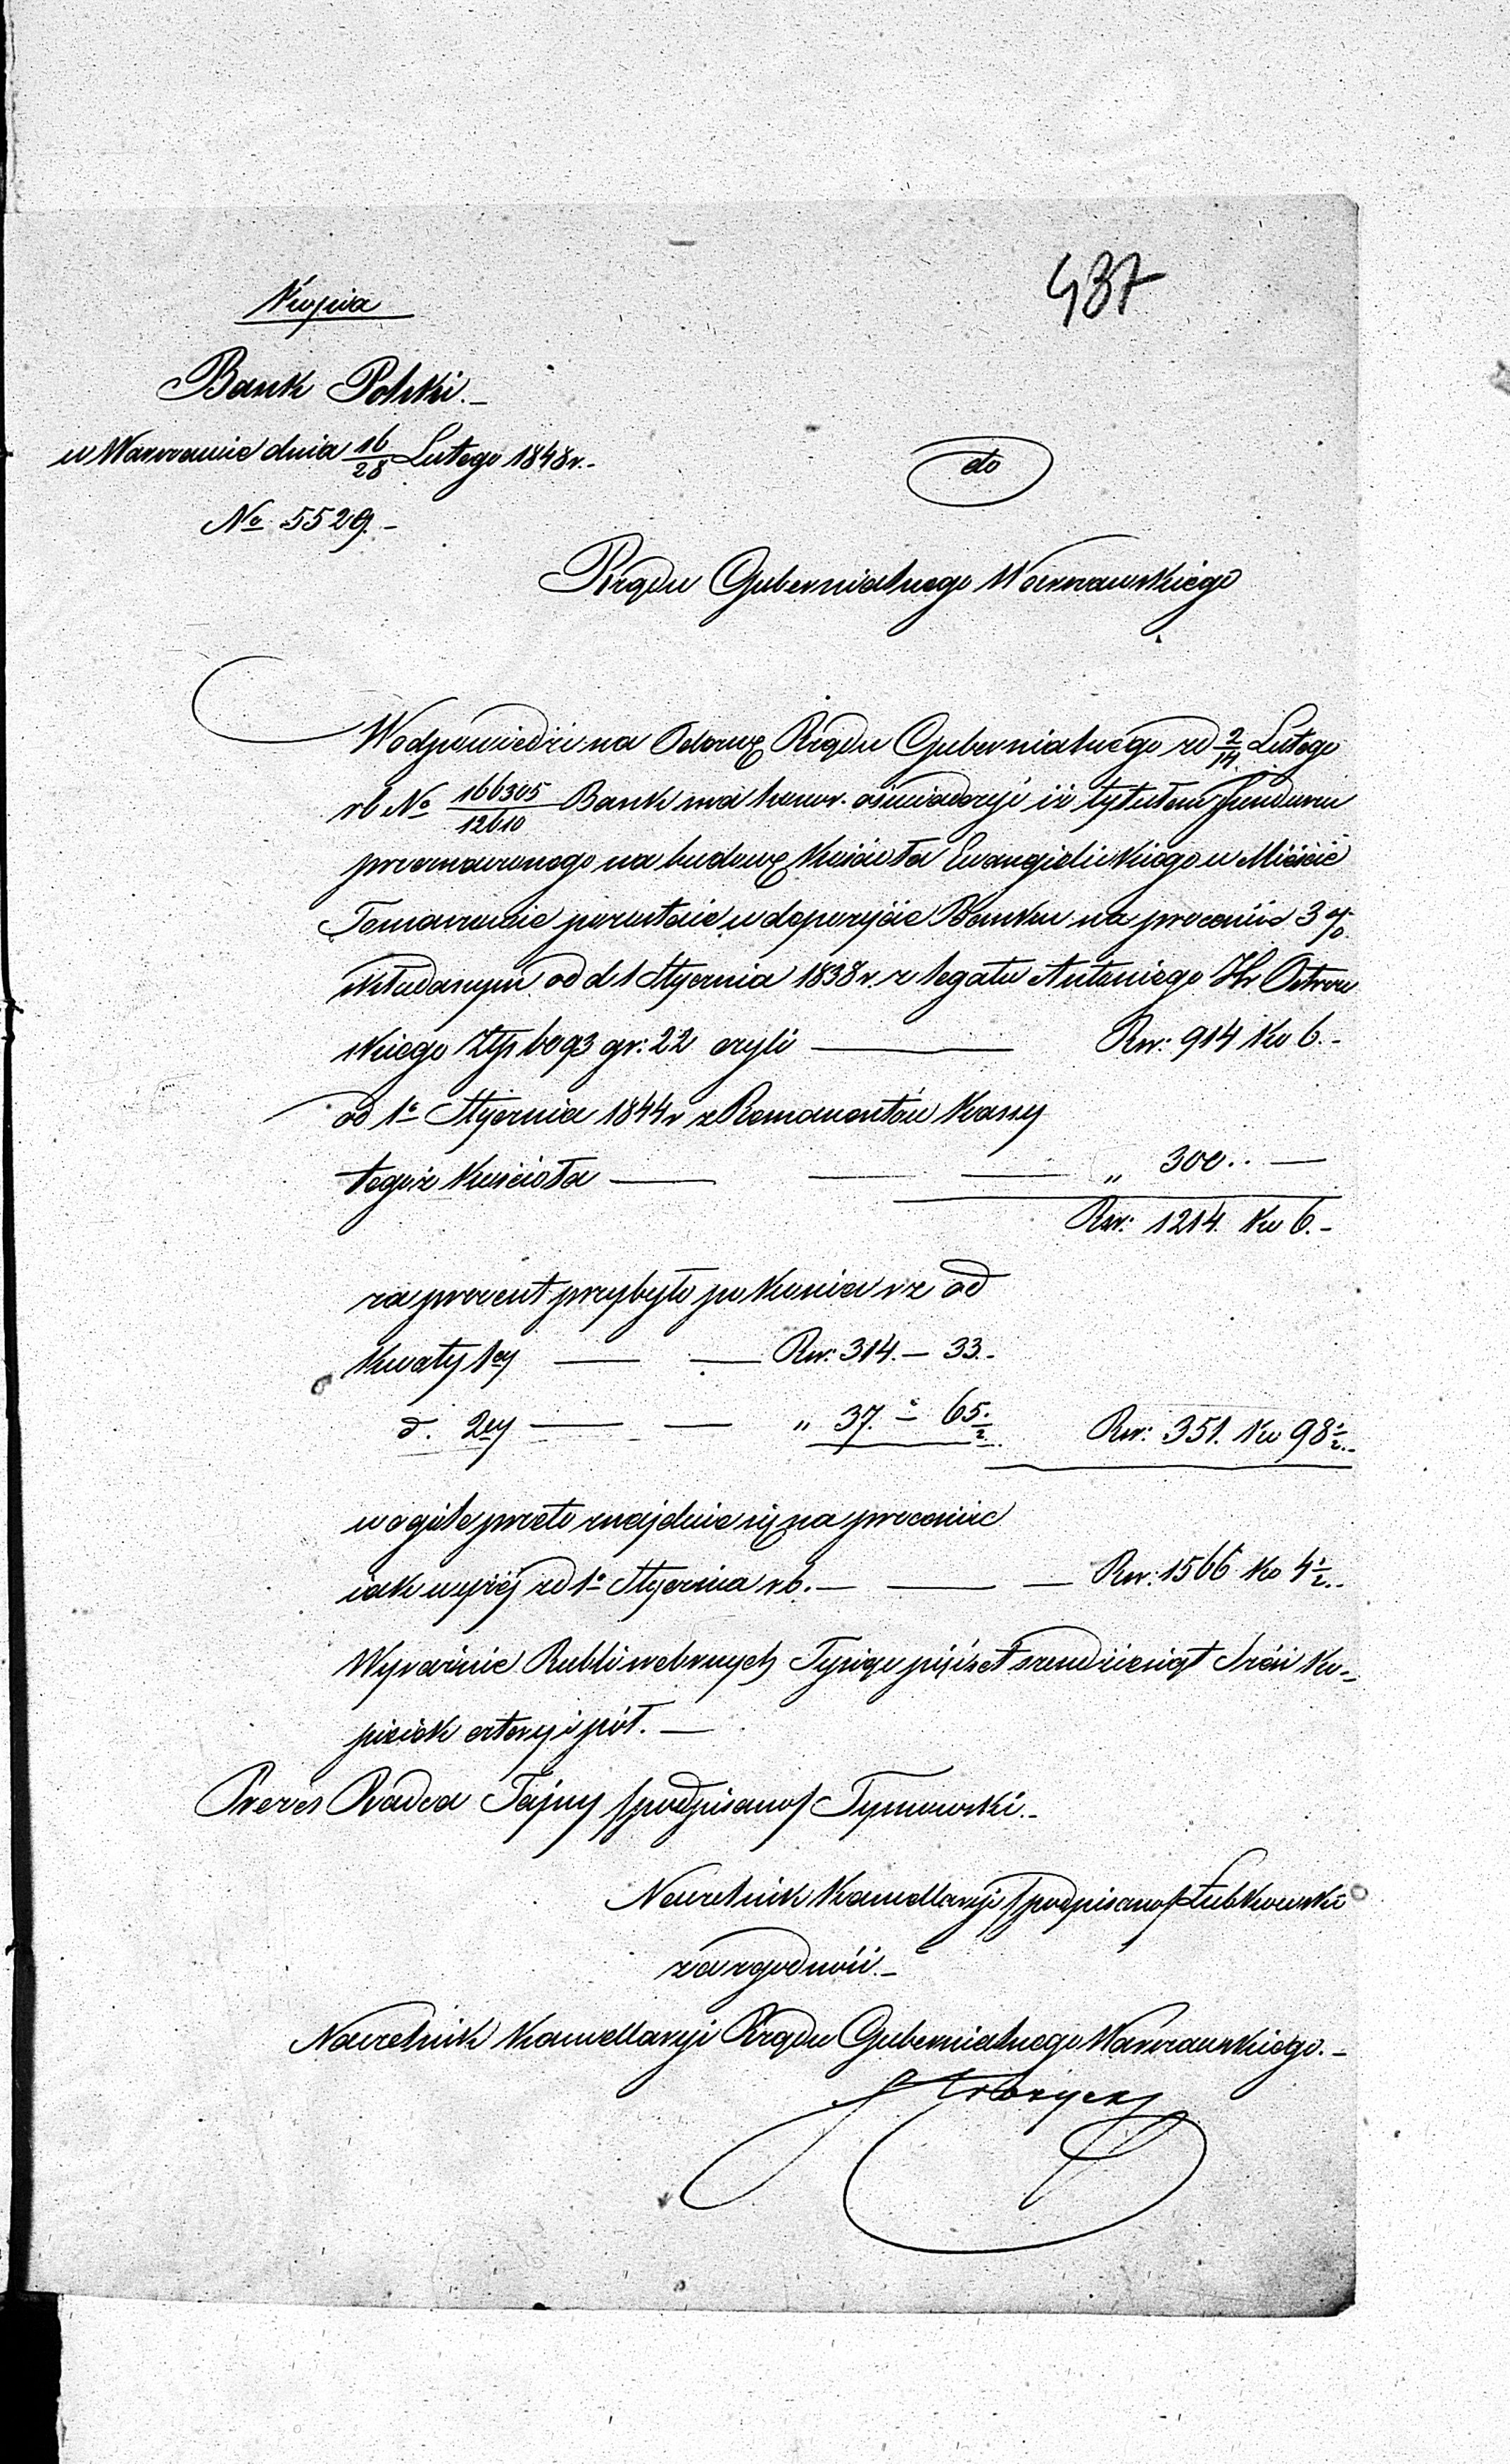 437
Kopia
Bank Polski.-
w Warszawie dnia 16/28 Lutego 1848 r.-
No 5529.-
do
Rządu Gubernialnego Warszawskiego
W odpowiedzi na Odezwę Rządu Gubernialnego zd 2/14 Lutego
rb No 166305/12610 Bank ma honor. oświadczyć iż tytułem funduszu
przeznaczonego na budowę Kościoła Ewangielickiego w Mieście
Tomaszowie pozostaie w depozycie Banku na procencie 3 %
składanym od d 1 Stycznia 1838 r. z legatu Antoniego Hr. Ostrow
skiego Złp 6093 gr: 22 czyli — Rsr: 914 ko 6.-
od 1o Stycznia 1844 r z Remanentów Kassy
tegoż Kościoła — — — „ 300.. —
Rsr: 1214. ko 6.-
za procent przybyło po koniec r z od
kwoty 1ey — — Rsr: 314. — 33.-
d. 2ey — — „ 37. — 65 1/2. Rsr: 351. ko 98 1/2.-
w ogóle przeto znajduie się na procencie
iak wyżej zd 1o Stycznia r b. — — — Rsr: 1566 ko 4 1/2.-
Wyraźnie Rubli srebrnych Tysiąc pięćset sześćdziesiąt sześć ko-
pieiek cztery i pół. —
Prezes Radca Tajny /podpisano/ Tymowski.-
Naczelnik Kancellaryi /podpisano/ Łubkowski
za zgodność.-
Naczelnik Kancellaryi Rządu Gubernialnego Warszawskiego.-